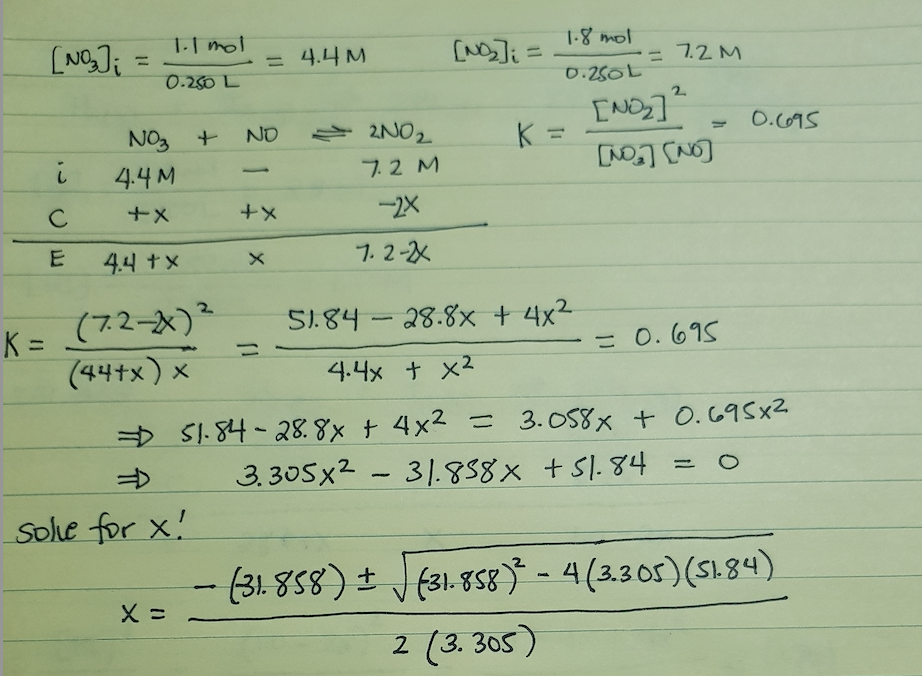 [NO₃]ᵢ = 1.1 mol / 0.250 L = 4.4 M [NO₂]ᵢ = 1.8 mol / 0.250 L = 7.2 M
NO₃ + NO ⇌ 2NO₂ K = [NO₂]² / [NO₃][NO] = 0.695
i 4.4 M — 7.2 M
C +x +x -2x
E 4.4 + x x 7.2-2x
K = (7.2-2x)² / (4.4+x) x = 51.84 - 28.8x + 4x² / 4.4x + x² = 0.695
⇒ 51.84 - 28.8x + 4x² = 3.058x + 0.695x²
⇒ 3.305x² - 31.858x + 51.84 = 0
solve for x!
x = -(31.858) ± √(-31.858)² - 4(3.305)(51.84) / 2 (3.305)